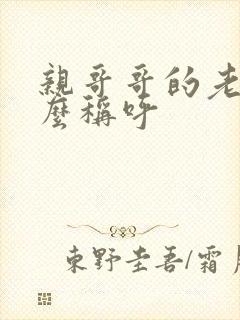 親哥哥的老
麼稱呼
東野圭吾/霜月